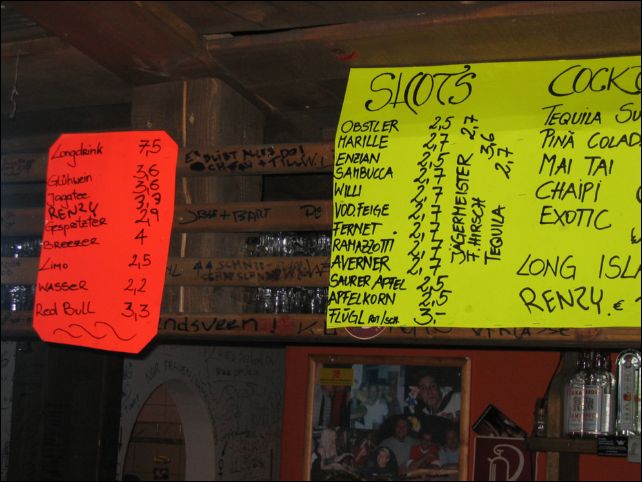 Longdrink 7,5
Glühwein 3,6
Jagatee 3,6
RENZY 3,3
Gespritzter 2,9
Breezer 4
Limo 2,5
WASSER 2,2
Red Bull 3,3
SHOT'S
OBSTLER 2,5
MARILLE 2,7
ENZIAN 2,5
SAMBUCCA 2,7
WILLI 2,7
VOD.FEIGE 2,7
FERNET 2,7
RAMAZZOTTI 2,7
AVERNER 2,7
SAURER APFEL 2,5
APFELKORN 2,5
FLÜGL ROT/SCH. 3,-
JÄGERMEISTER 2,7
F.HIRSCH 3,6
TEQUILA 2,7
COCKT
TEQUILA SU
PINÃ COLAD
MAI TAI
CHAIPI
EXOTIC
LONG ISLA
RENZY. €
BART